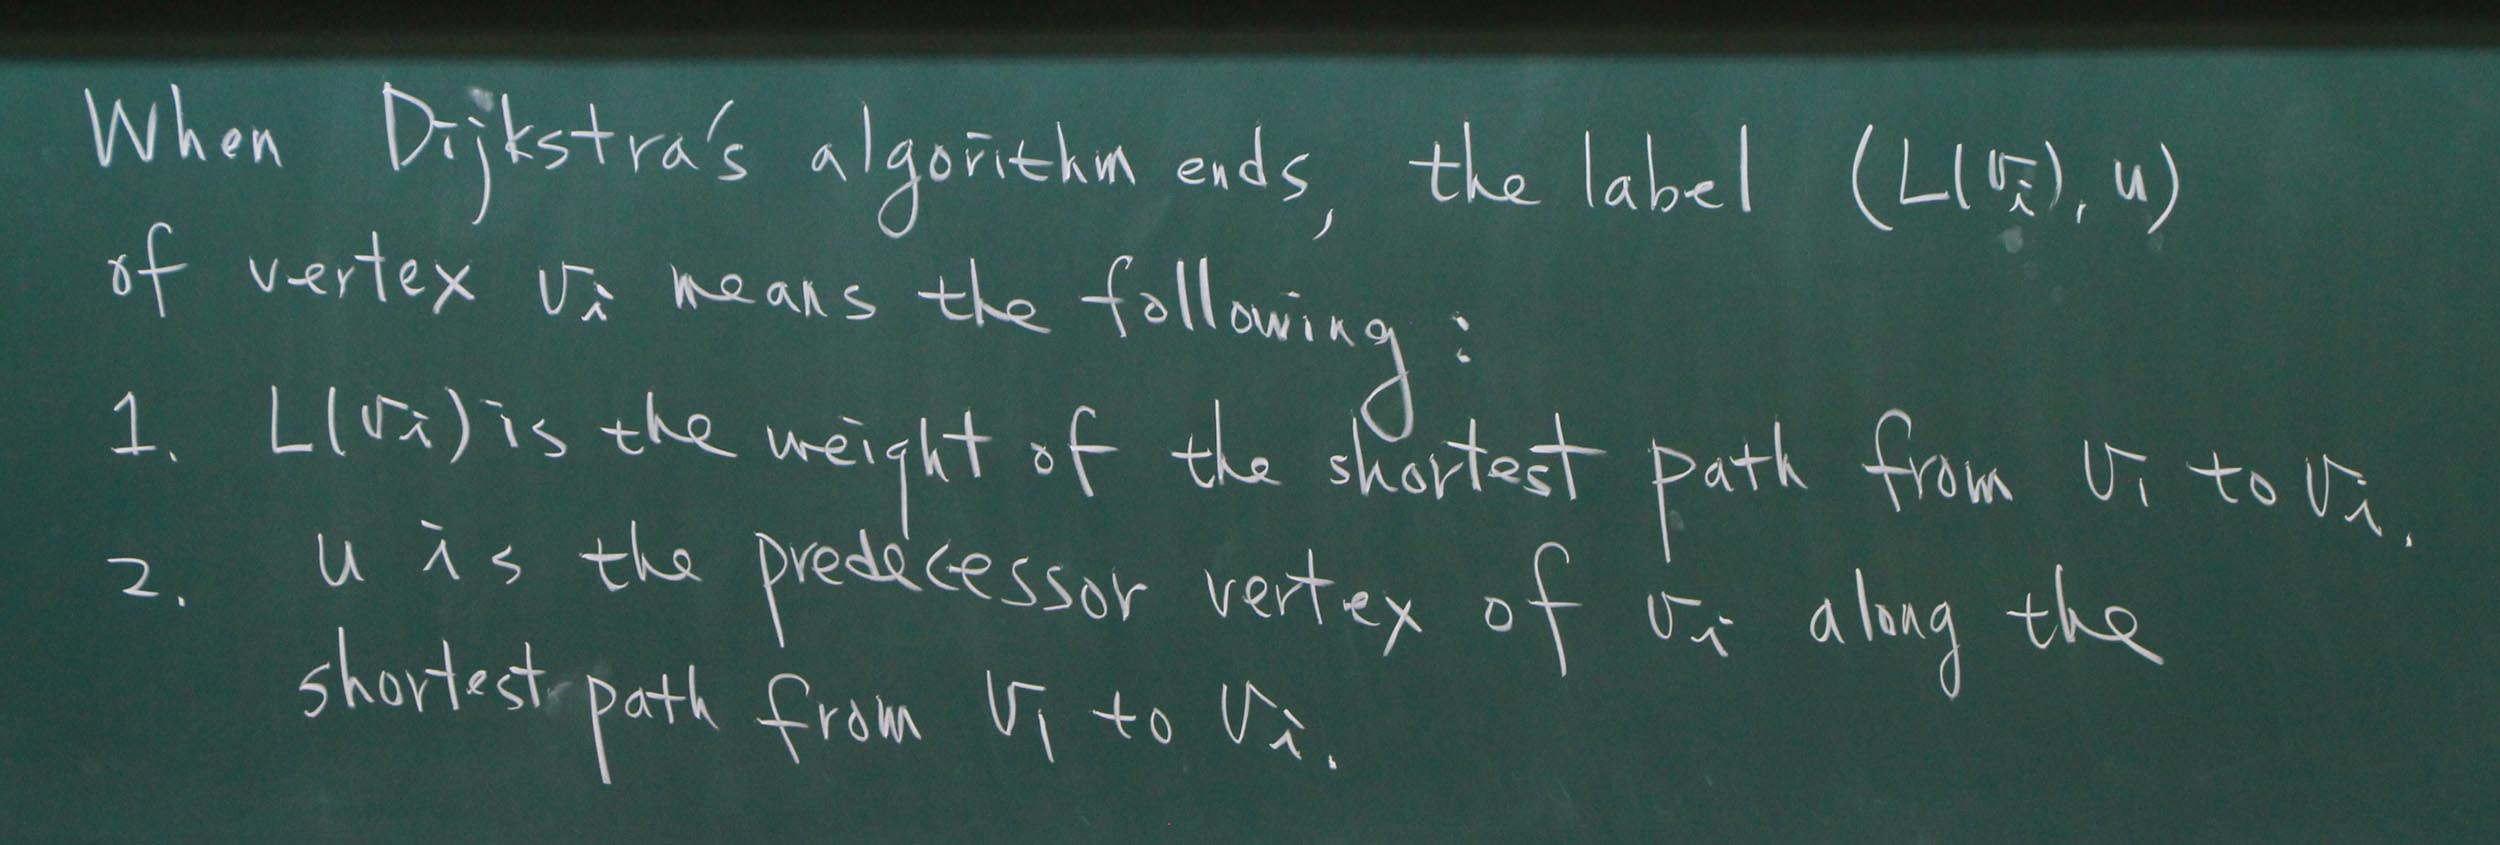 When Dijkstra's algorithm ends, the label (L(vᵢ), u)
of vertex vᵢ means the following:
1. L(vᵢ) is the weight of the shortest path from v₁ to vᵢ.
2. u is the predecessor vertex of vᵢ along the
shortest path from v₁ to vᵢ.